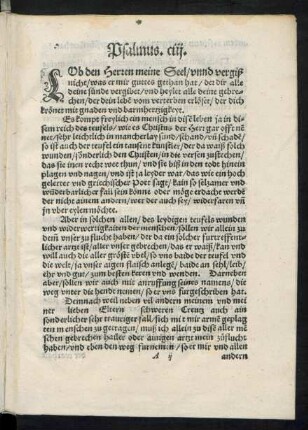 Psalmus. ciij.
LOb den Herren meine Seel/vnnd vergiß
nicht/was er mir guttes gethan hat/ der dir alle
deine sünde vergibet/vnd heylet alle deine gebre-
chen/der dein lebē vom verterben erlöset/der dich
krönet mit gnaden vnd barmhertzigkeyt.
Es kompt freylich ein mensch in diß leben ja in di-
sem reich des teufels/wie es Christus der Herr gar offt nē-
net/sehr leichtlich in mancherlay sünd/schand/vn̄ schadē/
ist auch der teufel ein tausent künstler/der da waiß solch
wunden/sonderlich den Christen/in die versen zustechen/
das sie jnen recht wee thun/vnd sie biß in den todt hinein
plagen vnd nagen/vnd ist ja leyder war/ das wie ein hoch
gelerter vnd griechischer Poet sage/ kain so seltzamer vnd
würderbarlicher fall sein könne oder möge erdacht werdē
der nicht ainem andern/wer der auch sey/ widerfaren vn̄
jn vber eylen möchte.
Aber in solchen allen/des leydigen teufels wunden
vnd widerwertigkaiten der menschen/sollen wir allein zu
dem vnser zuflucht haben/ der da ein solcher furtreffenli-
cher artzt ist/ aller vnser gebrechen/das er waiß/kan vnd
will auch die aller gröste vbel/so vns baide der teufel vnd
die welt/ja vnser aigen flaisch anlegt/ baide an seel/leib/
ehr vnd gut/ zum besten keren vnd wenden. Darneben
aber/sollen wir auch mit anruffung seines namens/ die
weg vnter die hendt nemen/ so er vns furgeschriben hat.
Demnach weil neben vil andern meinem vnd mei-
ner lieben Eltern schweren Creutz auch ain
sonderlicher sehr trauriger fall/sich mit mir armē geplag
ten menschen zu getragen/muß ich allein zu dise aller mē
schen gebrechen hailer vnd ainigen artzt mein zuflucht
haben/vnd eben den weg furnemen/ so er mir vnd allen
A ij andern